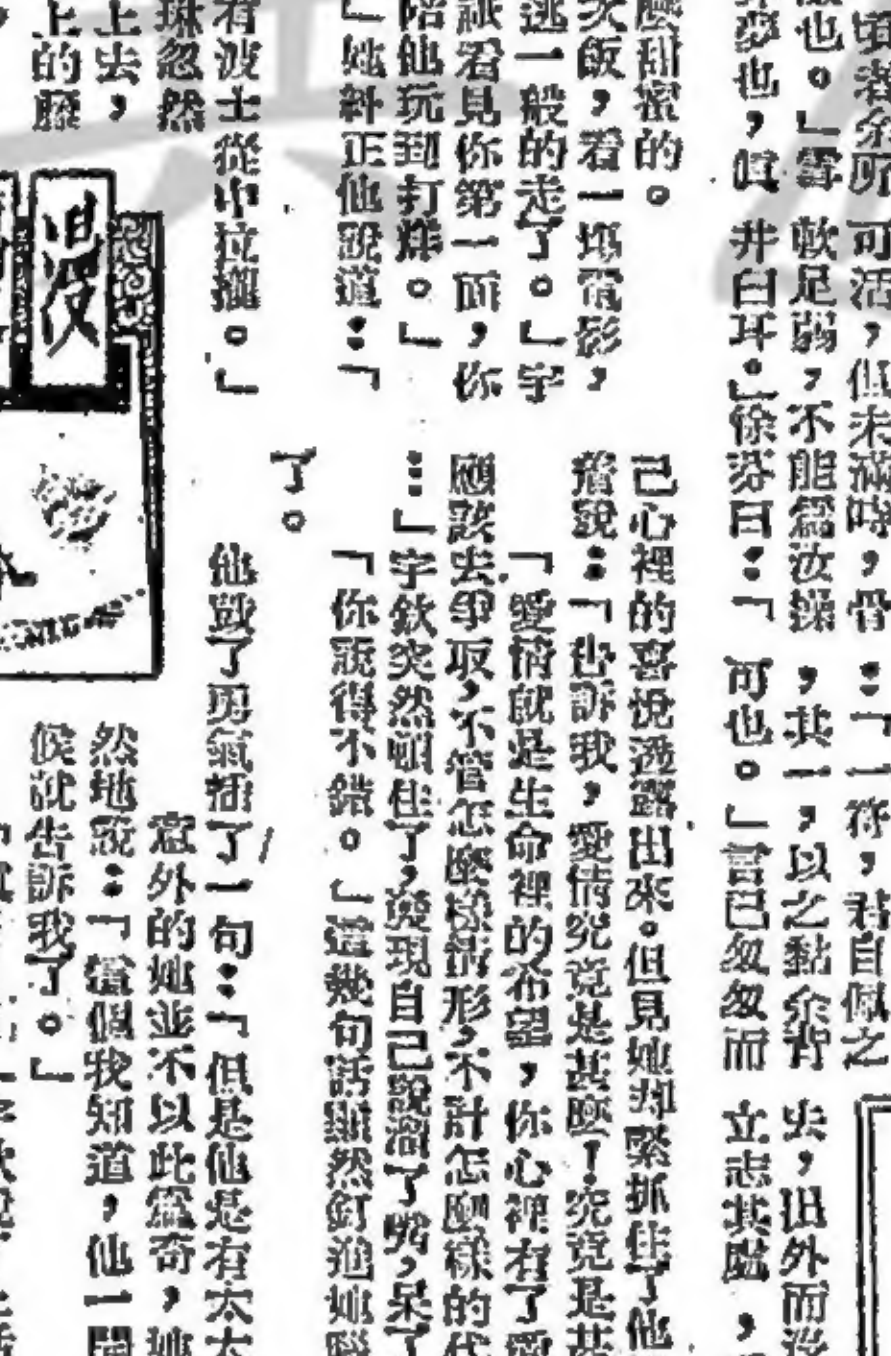 可活，但未滿時，骨
軟足弱，不能為汝操
井臼耳。」徐芬曰：「
：「一符，君自佩之
，其一，以之黏余背
可也。」言已匆匆而
去，出外而
立志其處，
麼甜蜜的。
次飯，看一場電影，
逃一般的走了。」宇
祇看見你第一面，你
陪他玩到打烊。」
」她糾正他說道：「
有波士從中拉攏。」
琳忽然
上去，
上的
己心裡的喜悅透露出來。但見她却緊抓住了他
着說：「告訴我，愛情究竟是甚麼！究竟是甚
「愛情就是生命裡的希望，你心裡有了愛
應該去爭取，不管怎麼樣情形，不計怎麼樣的代
…」宇欽突然頓住了，發現自己說溜了嘴，呆了
「你說得不錯。」這幾句話顯然釘進她
了。
他鼓了勇氣插了一句：「但是他是有太太
意外的她並不以此為奇，她
然地說：「這個我知道，他一開
候就告訴我了。」
沒